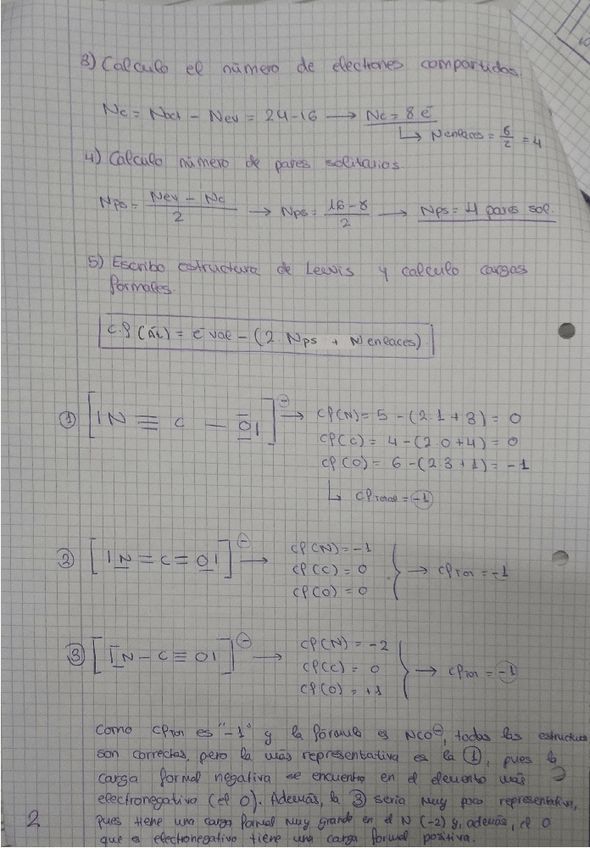 3) Calculo el número de electrones compartidos
Nc = Noct - Nev = 24-16 → Nc = 8 e⁻
↳ N enlaces = 6/2 = 4
4) Calculo número de pares solitarios.
Nps = (Nev - Nc)/2 → Nps = (16-8)/2 → Nps = 4 pares sol.
5) Escribo estructura de Lewis y calculo cargas
formales.
= e⁻ val - (2·Nps + N enlaces)
① [IN ≡ C - O̲̅I]⊖ → cf(N) = 5 - (2·1 + 3) = 0
cf(C) = 4 - (2·0 + 4) = 0
cf(O) = 6 - (2·3 + 1) = -1
↳ cf total = -1
② [IN̲ = C = O̲I]⊖ → cf(N) = -1
cf(C) = 0
cf(O) = 0
→ cf tot = -1
③ [IN̲̅ - C ≡ OI]⊖ → cf(N) = -2
cf(C) = 0
cf(O) = +1
→ cf tot = -1
Como cf tot es "-1" y la fórmula es NCO⊖, todas las estructuras
son correctas, pero la más representativa es la ①, pues la
carga formal negativa se encuentra en el elemento más
electronegativo (el O). Además, la ③ sería muy poco representativa,
pues tiene una carga formal muy grande en el N (-2) y, además, el O
que es electronegativo tiene una carga formal positiva.
2